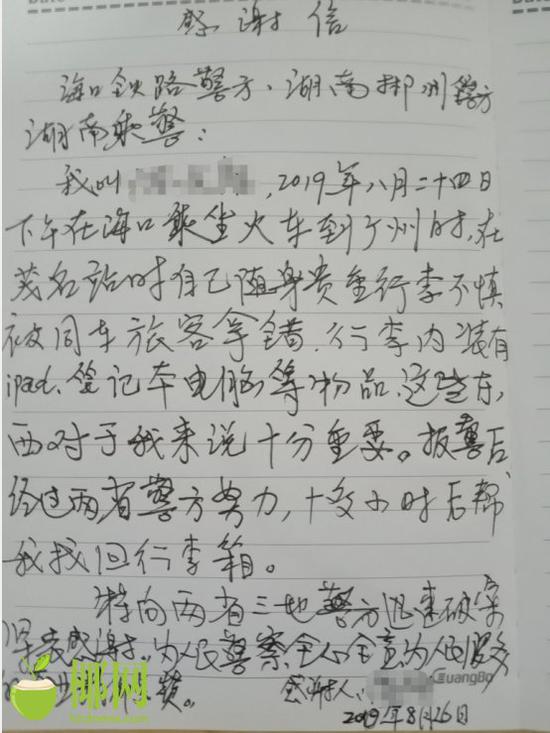 感谢信
海口铁路警方、湖南郴州警方
湖南乘警：
我叫 ，2019年八月二十四日
下午在海口乘坐火车到广州时，在
茂名站时自己随身贵重行李不慎
被同车旅客拿错，行李内装有
ipad、笔记本电脑等物品，这些东
西对于我来说十分重要。报警后
经过两省警方努力，十多小时后帮
我找回行李箱。
特向两省三地警方迅速破案
深表感谢，为人民警察全心全意为人民服务
感谢人：
2019年8月26日
GuangBo
椰网